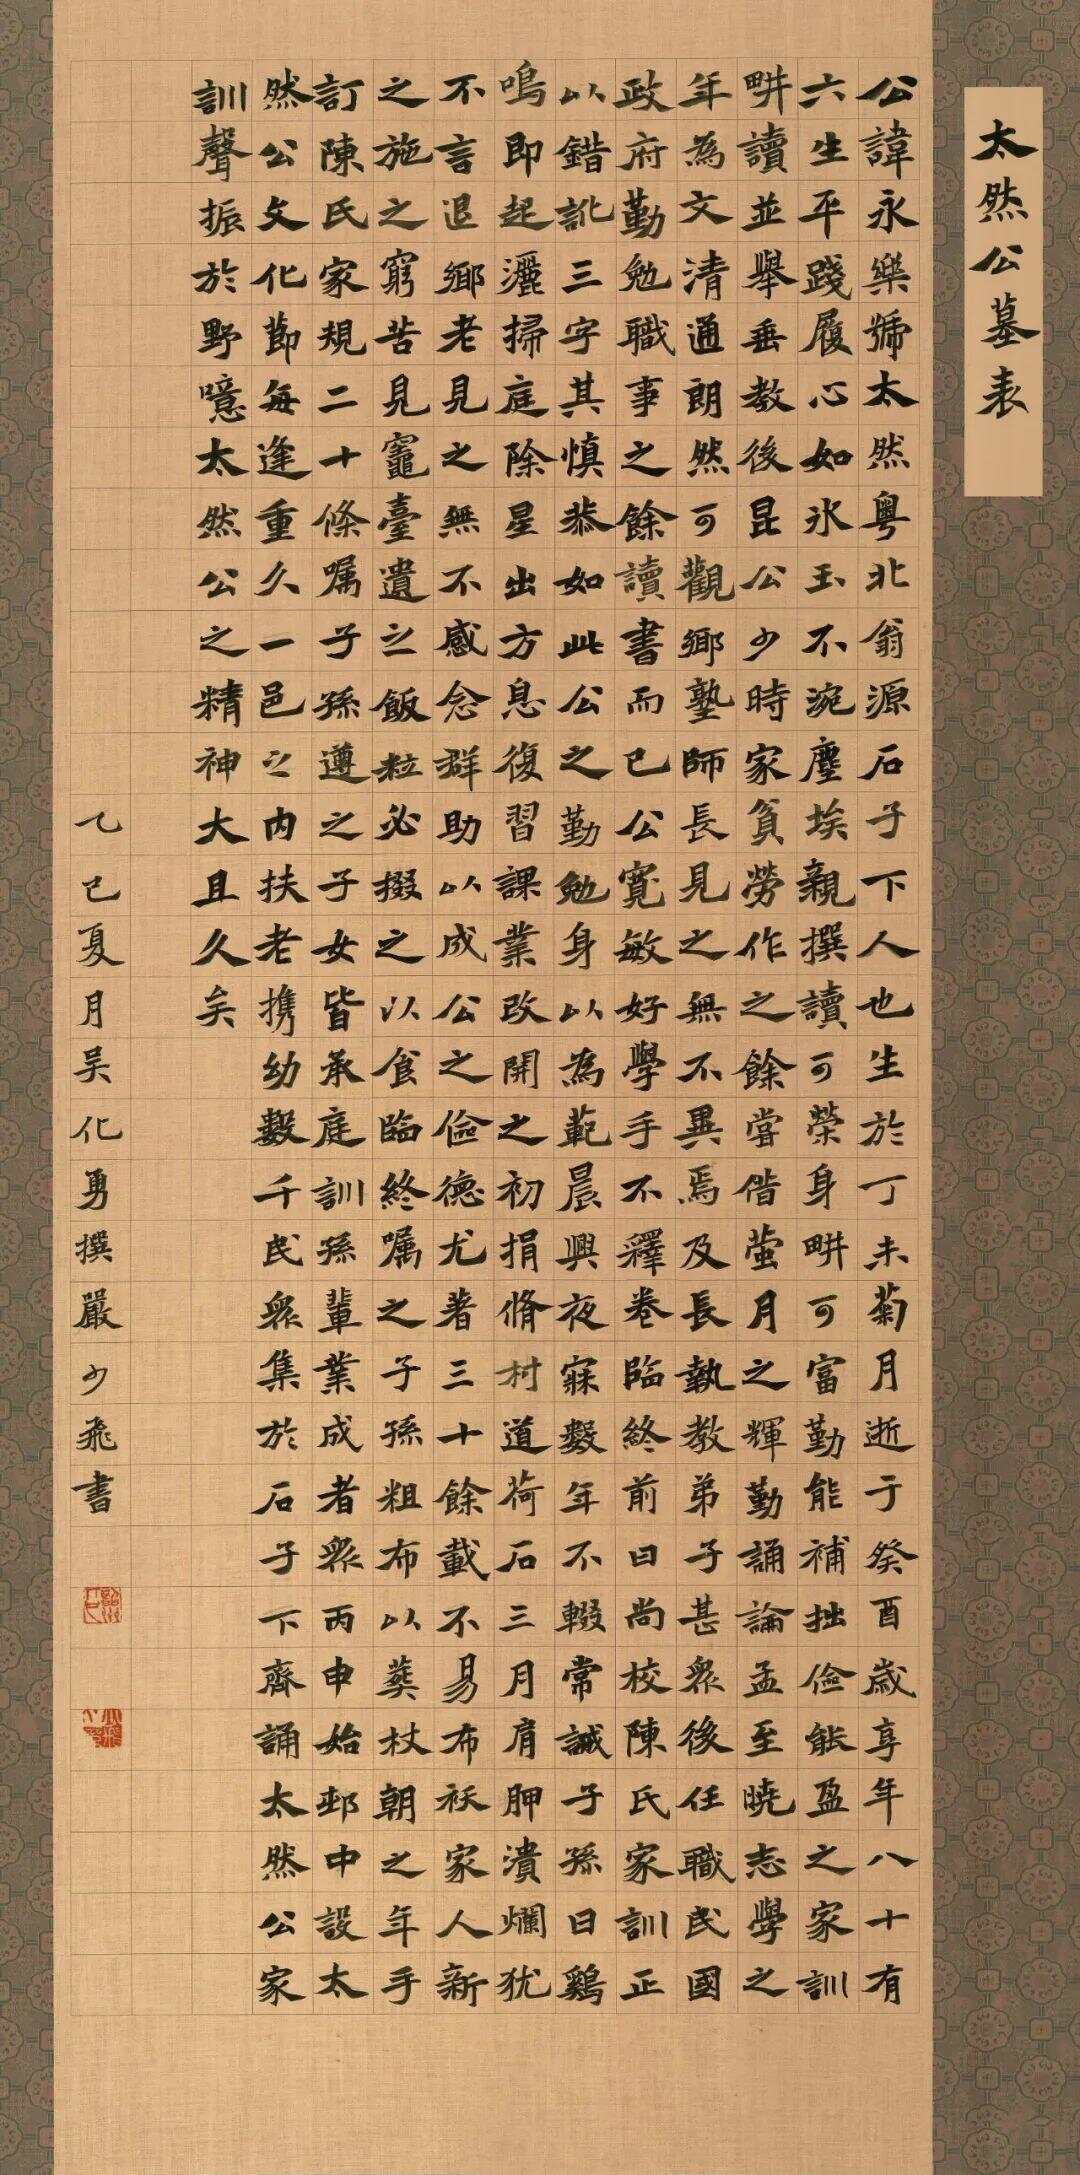 太然公墓表
公諱永樂號太然粵北翁源石子下人也生於丁未菊月逝于癸酉歲享年八十有
六生平踐履心如冰玉不涴塵埃親撰讀可榮身畊可富勤能補拙儉能盈之家訓
畊讀並舉垂教後昆公少時家貧勞作之餘嘗借萤月之輝勤誦論孟至曉志學之
年為文清通朗然可觀鄉塾師長見之無不異焉及長執教弟子甚眾後任職民國
政府勤勉職事之餘讀書而已公寬敏好學手不釋卷臨終前曰尚校陳氏家訓正
以錯訛三字其慎恭如此公之勤勉身以為範晨興夜寐數年不輟常誡子孫曰鷄
鳴即起灑掃庭除星出方息復習課業改開之初捐脩村道荷石三月肩胛潰爛犹
不言退鄉老見之無不感念群助以成公之儉德尤著三十餘載不易布袄家人新
之施之窮苦見竈臺遺之飯粒必掇之以食臨終嘱之子孫粗布以葬杖朝之年手
訂陳氏家規二十條嘱子孫遵之子女皆承庭訓孫輩業成者眾丙申始邨中設太
然公文化節每逢重久一邑之内扶老携幼數千民眾集於石子下齊誦太然公家
訓聲振於野噫太然公之精神大且久矣
乙巳夏月吴化勇撰嚴少飛書